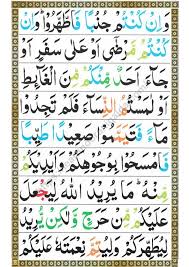 وَاِنْ كُنْتُمْ جُنُبًا فَاطَّهَّرُوْا وَاِنْ
كُنْتُمْ مَّرْضٰۤى اَوْ عَلٰى سَفَرٍ اَوْ
جَآءَ اَحَدٌ مِّنْكُمْ مِّنَ الْغَآئِطِ
اَوْ لٰمَسْتُمُ النِّسَآءَ فَلَمْ تَجِدُوْا
مَآءً فَتَيَمَّمُوْا صَعِيْدًا طَيِّبًا
فَامْسَحُوْا بِوُجُوْهِكُمْ وَاَيْدِيْكُمْ
مِّنْهُ مَا يُرِيْدُ اللّٰهُ لِيَجْعَلَ
عَلَيْكُمْ مِّنْ حَرَجٍ وَّلٰكِنْ يُّرِيْدُ
لِيُطَهِّرَكُمْ وَلِيُتِمَّ نِعْمَتَهٗ عَلَيْكُمْ